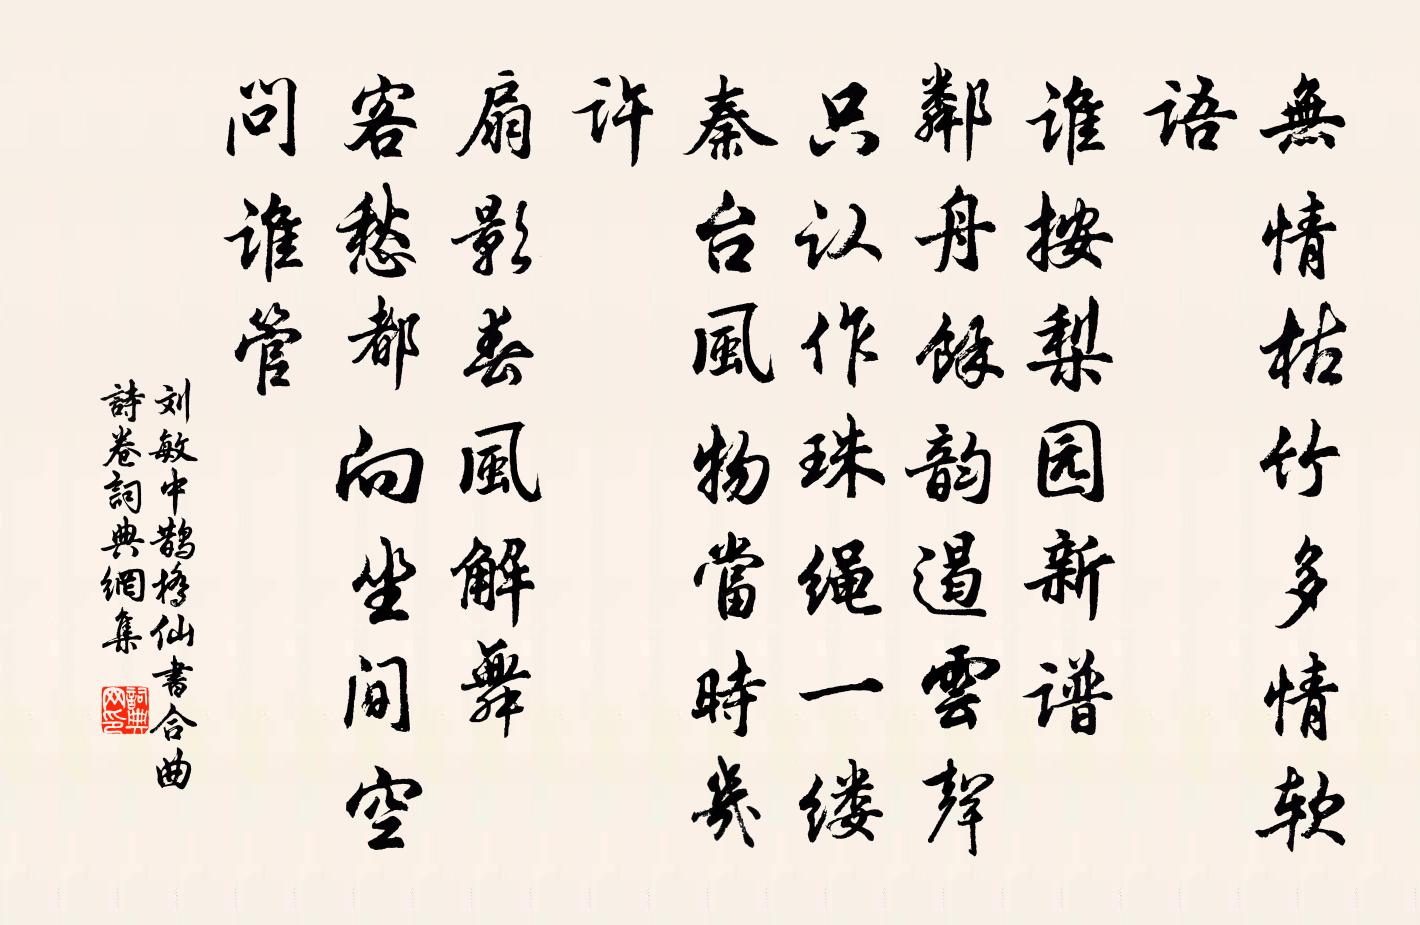 無情枯竹多情软
语
谁按梨园新谱
鄰舟餘韵遏雲聲
只认作珠绳一缕
秦台風物當時幾
许
扇影春風解舞
客愁都向坐间空
问谁管
刘敏中鹊橋仙書合曲
詩卷詞典網集
詞典
网印